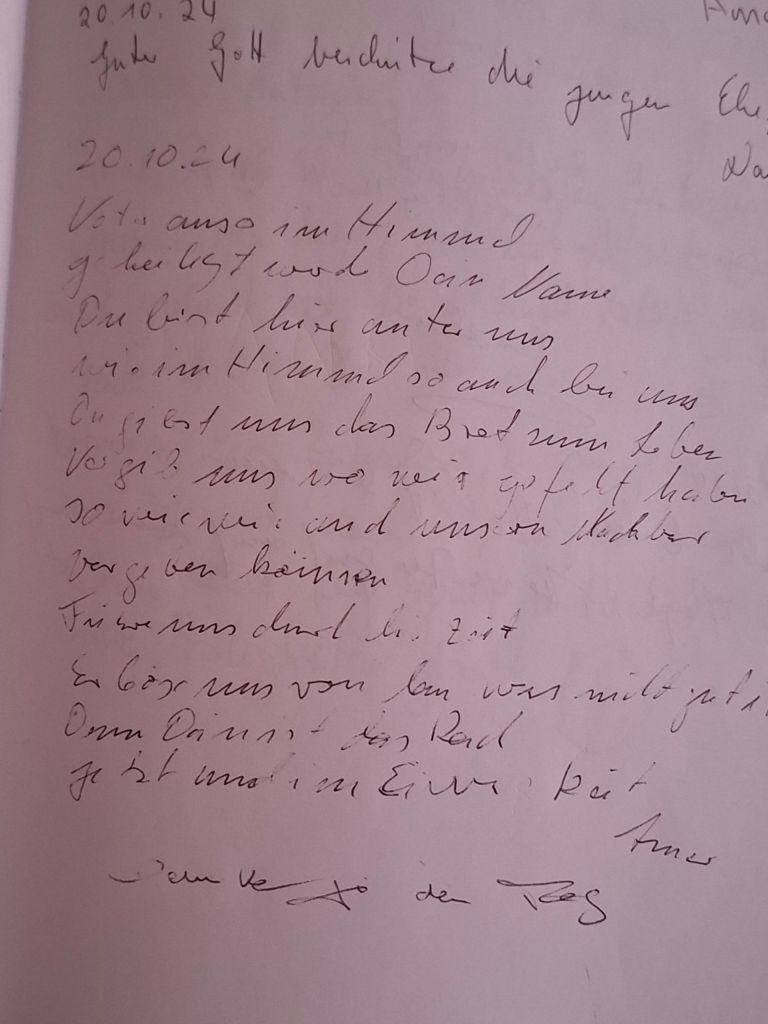 20.10.24
Guter Gott beschütze die jungen Ehe
20.10.24
Vater unser im Himmel
geheiligt werde Dein Name
Du bist hier unter uns
wie im Himmel so auch bei uns
Du gibst uns das Brot zum Leben
Vergib uns wo wir gefehlt haben
so wie wir auch unsern Nachbar
vergeben können
Führe uns durch die Zeit
Erlöse uns von was nicht gut
Denn Dein ist das Reich
jetzt und in Ewigkeit
Amen
Danke für den Tag